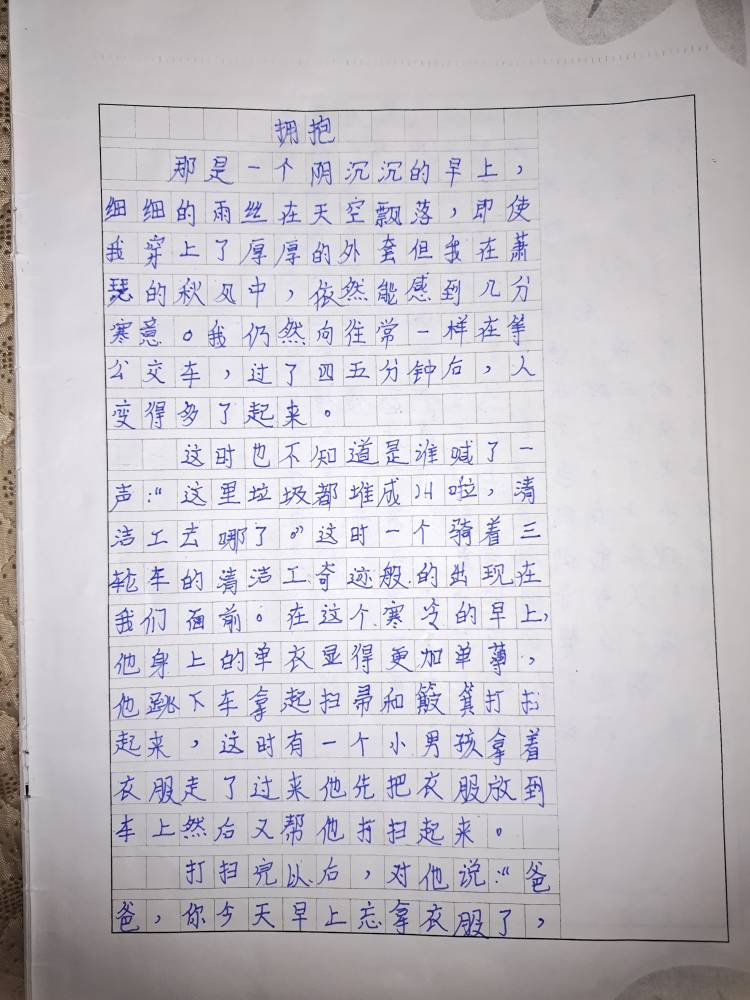 拥抱
那是一个阴沉沉的早上，
细细的雨丝在天空飘落，即使
我穿上了厚厚的外套但我在萧
瑟的秋风中，依然能感到几分
寒意。我仍然向往常一样在等
公交车，过了四五分钟后，人
变得多了起来。
这时也不知道是谁喊了一
声：“这里垃圾都堆成山啦，清
洁工去哪了。”这时一个骑着三
轮车的清洁工奇迹般的出现在
我们面前。在这个寒冷的早上，
他身上的单衣显得更加单薄，
他跳下车拿起扫帚和簸箕打扫
起来，这时有一个小男孩拿着
衣服走了过来他先把衣服放到
车上然后又帮他打扫起来。
打扫完以后，对他说：“爸
爸，你今天早上忘拿衣服了，